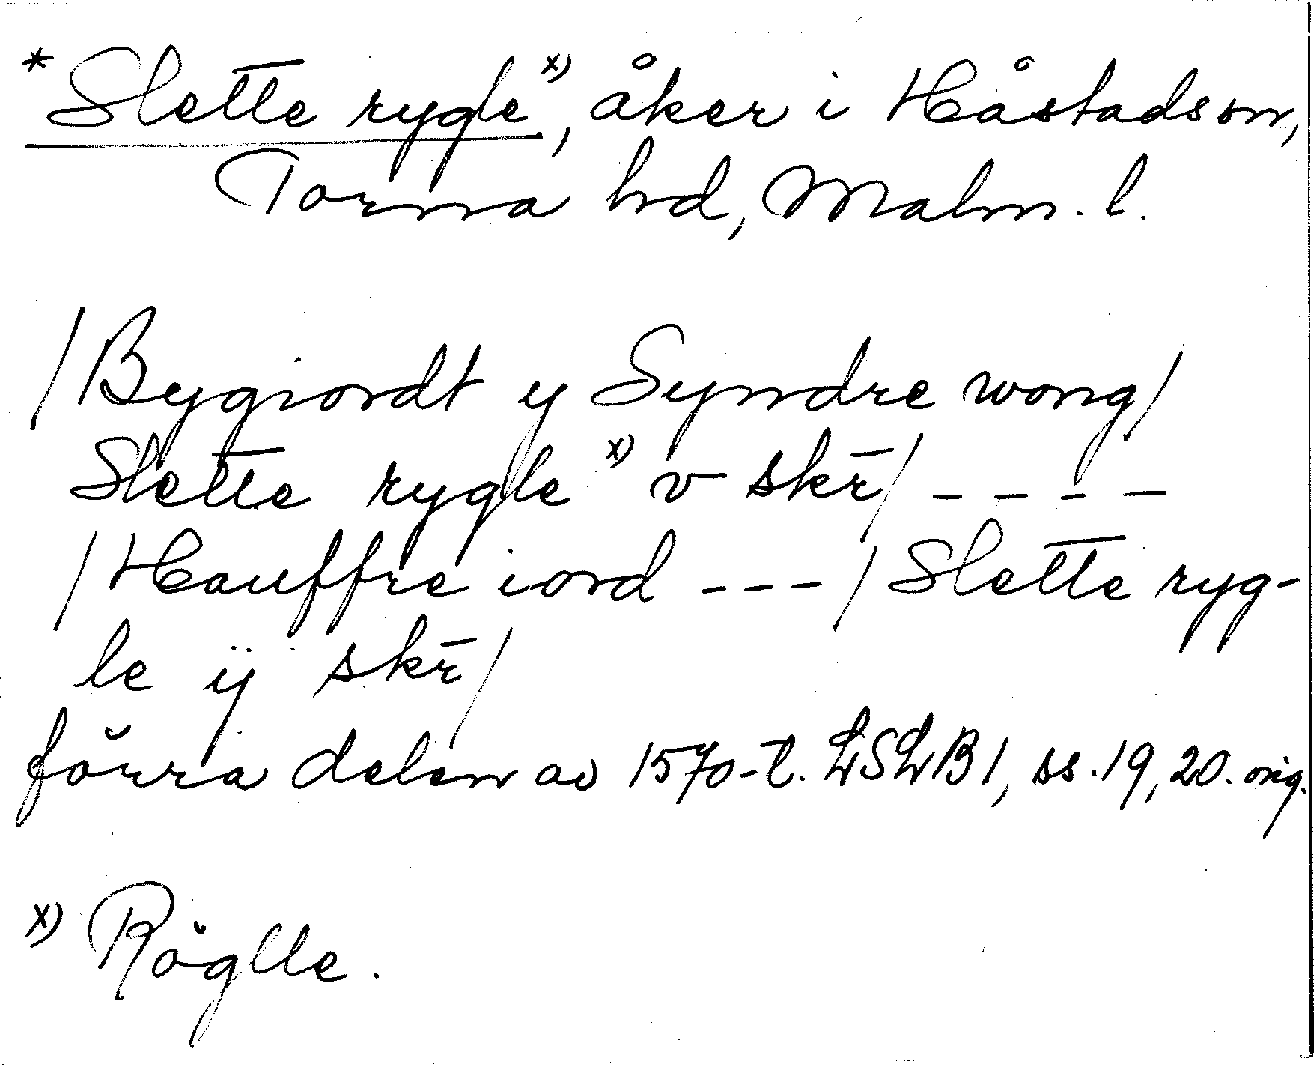 * Slette rygle x), åker i Håstad sn,
Torna hd, Malm. l.
/Bygiordt y Syndre wong/
Slette rygle x) v skr̄/ - - - -
/Hauffre iord - - - / Slette ryg-
le ÿ skr̄/
förra delen av 1570-t. LSLB1, ss. 19, 20. orig.
x) Röglle.